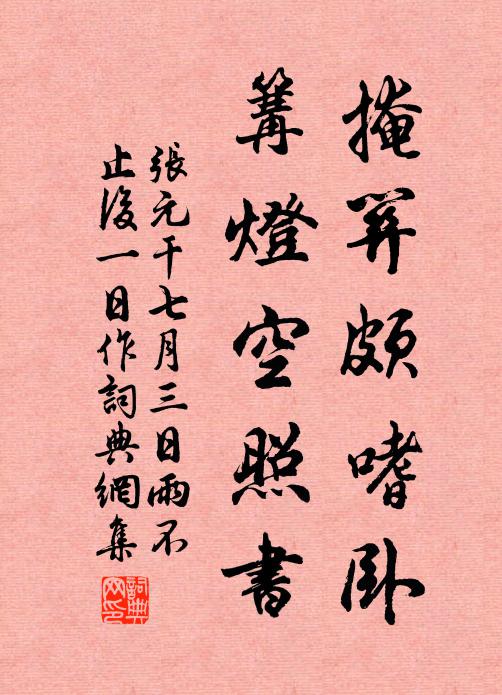 掩關頗嗜臥
篝燈空照書
張元干七月三日雨不
止後一日作詞典網集
詞典網印